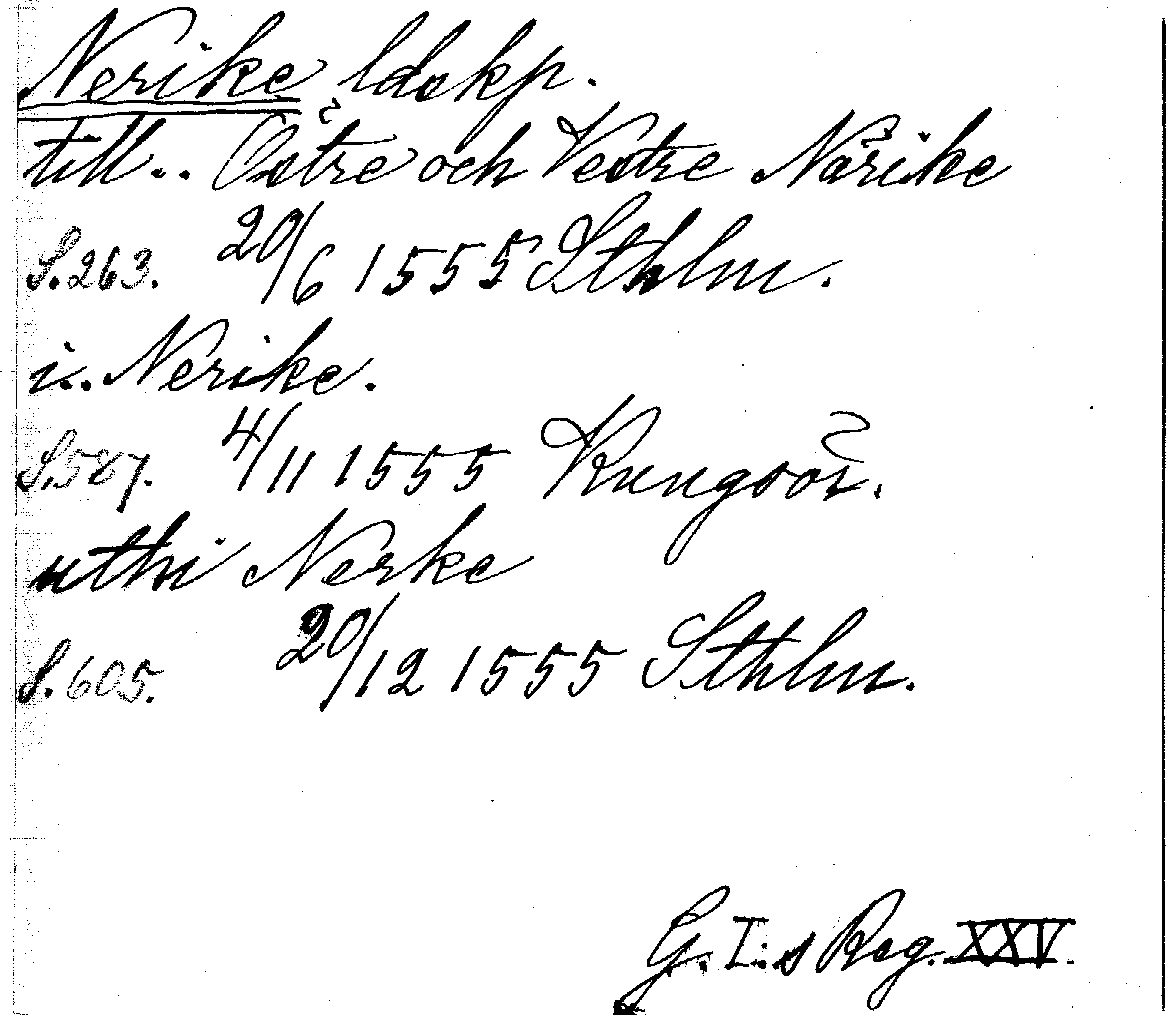 Nerike ldskp.
till.. Östre och Vestre Närike
S.263. 20/6 1555 Sthlm.
i.. Nerike.
S.587. 4/11 1555 Kungsör.
uthi Nerke
S.605. 20/12 1555 Sthlm.
G. I:s Reg. XXV.